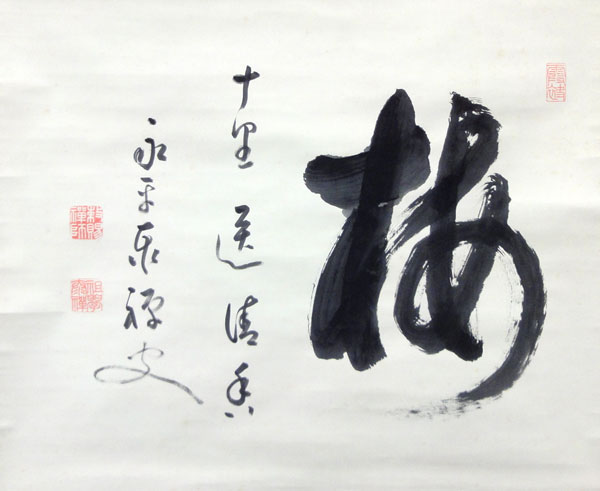 梅
十里送清香
永平泰禅叟